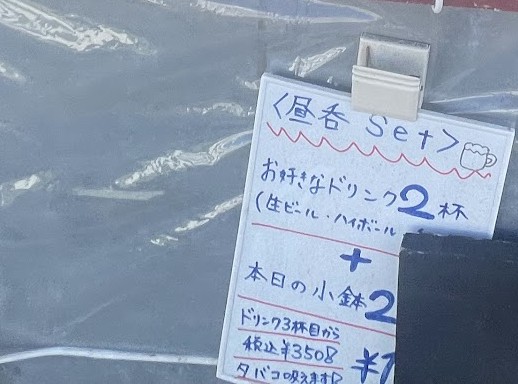 〈昼呑 Set〉
お好きなドリンク2杯
(生ビール・ハイボール
+
本日の小鉢2
ドリンク3杯目から
税込¥3508
¥1
タバコ吸えます!?